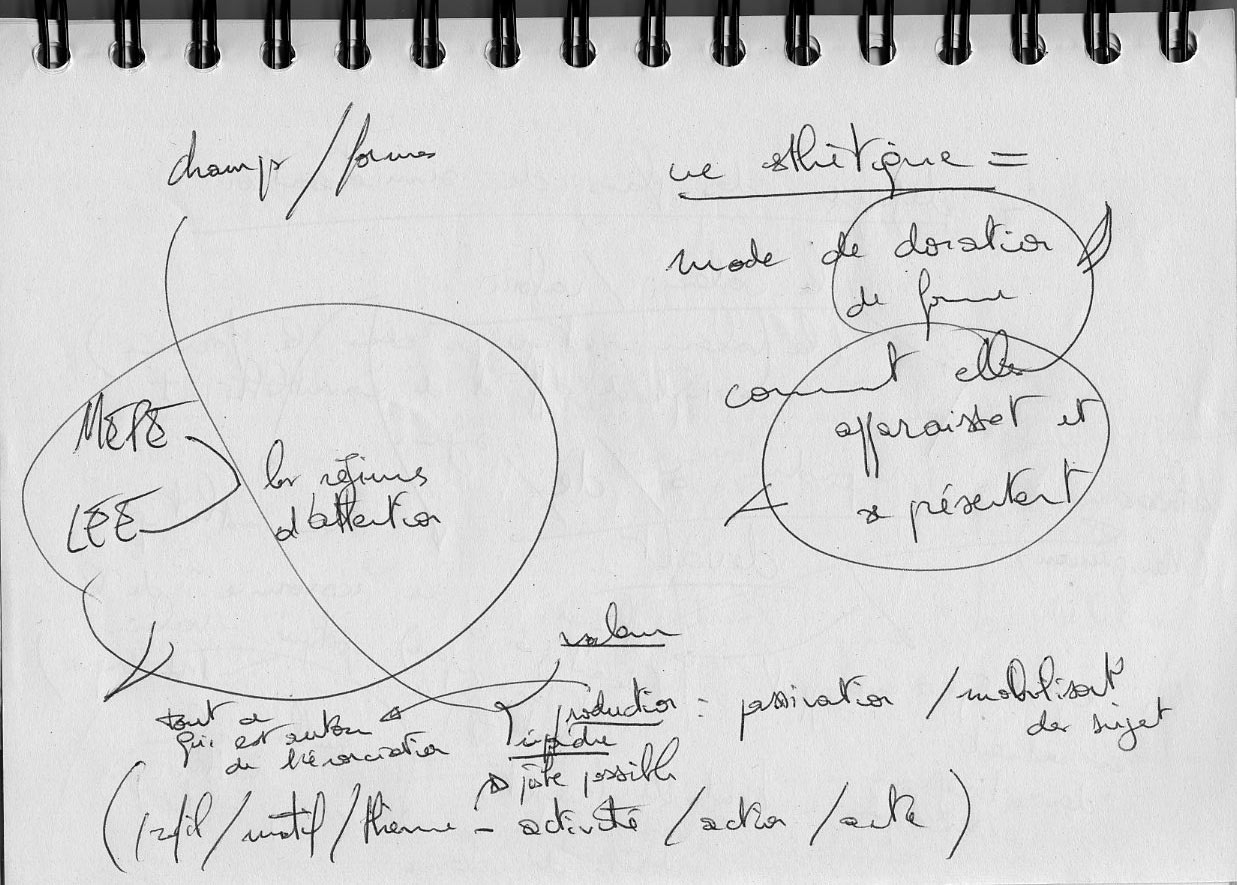 champs / formes
une esthétique =
mode de donation
de forme
comment elles
apparaissent et
se présentent
MEPE
LEE
les régimes
d'attention
valeur
production : passivation / mobilisant
des sujets
tout ce
qui est autour
de l'énonciation
possible
(profil / motif / thème - activité / action / acte)